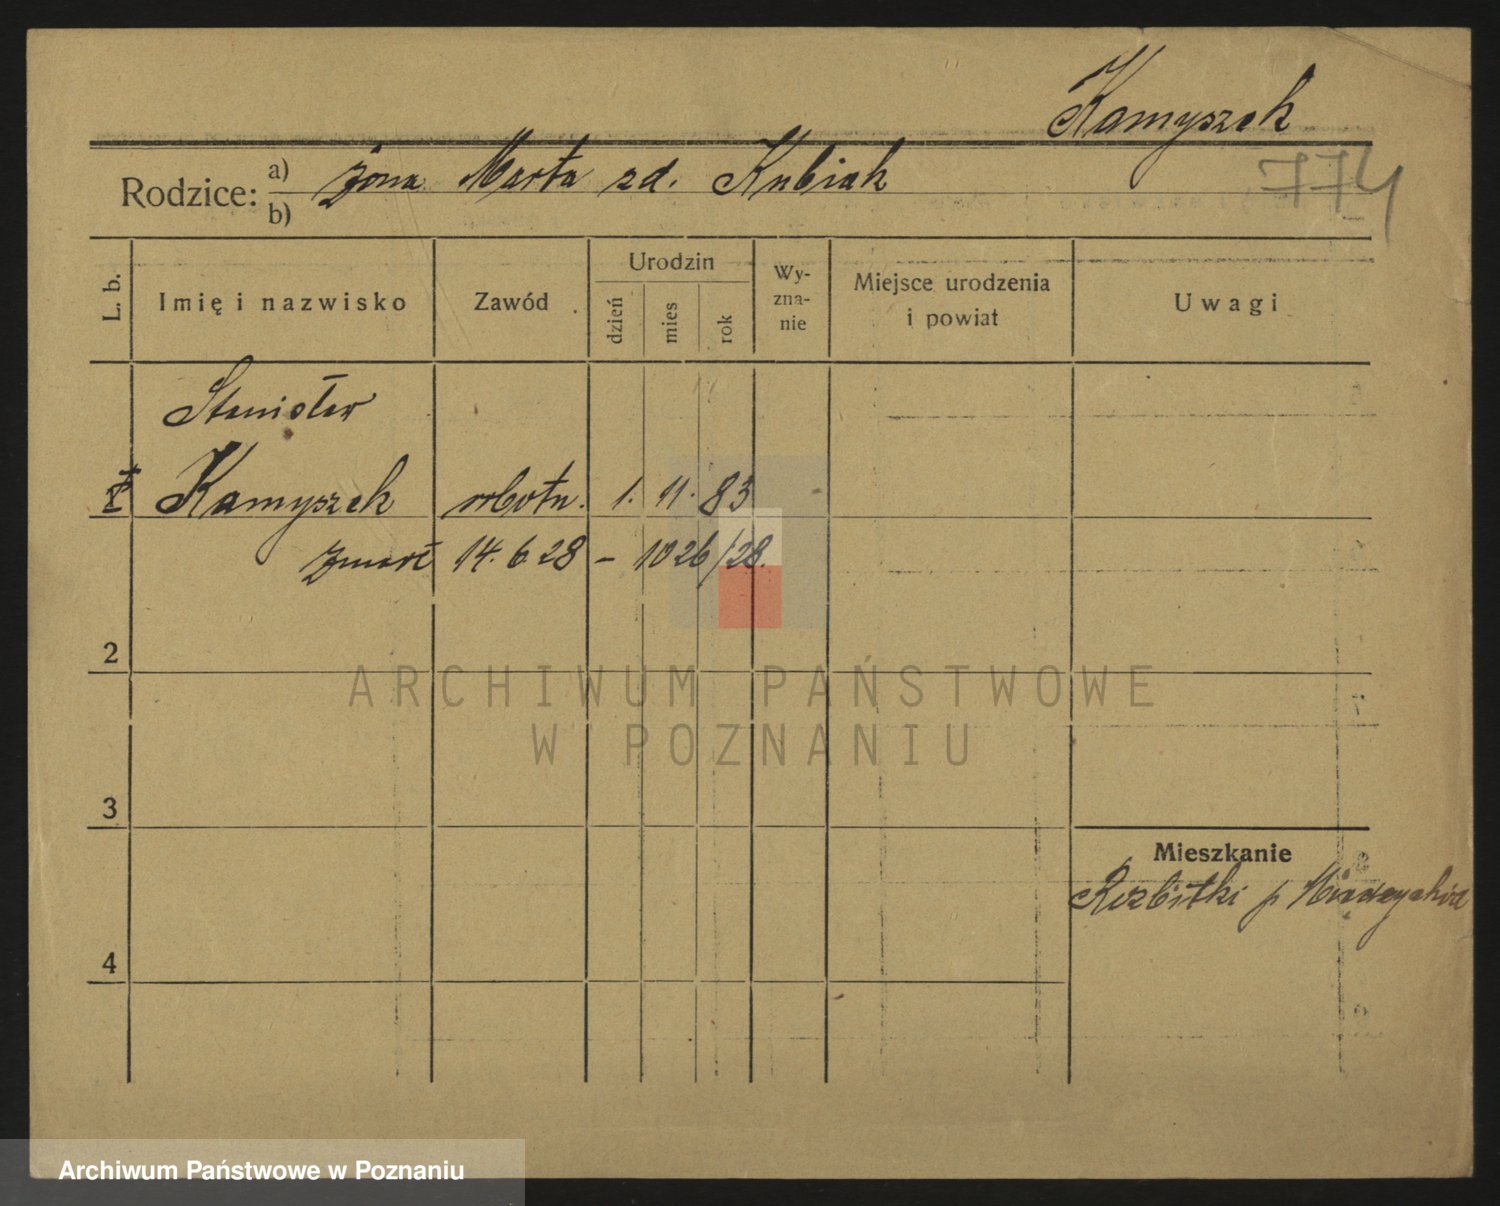 Kamyszek
774
Rodzice: a) żona Marta zd. Kubiak
b)
L. b. Imię i nazwisko Zawód Urodzin dzień mies rok Wy-zna-nie Miejsce urodzenia i powiat Uwagi
Stanisław
Kamyszek robotn. 1. 11. 83
zmarł 14.6.28 – 1026/28.
2
3
Mieszkanie
Rozbitki p
4
ARCHIWUM PAŃSTWOWE
W POZNANIU
Archiwum Państwowe w Poznaniu